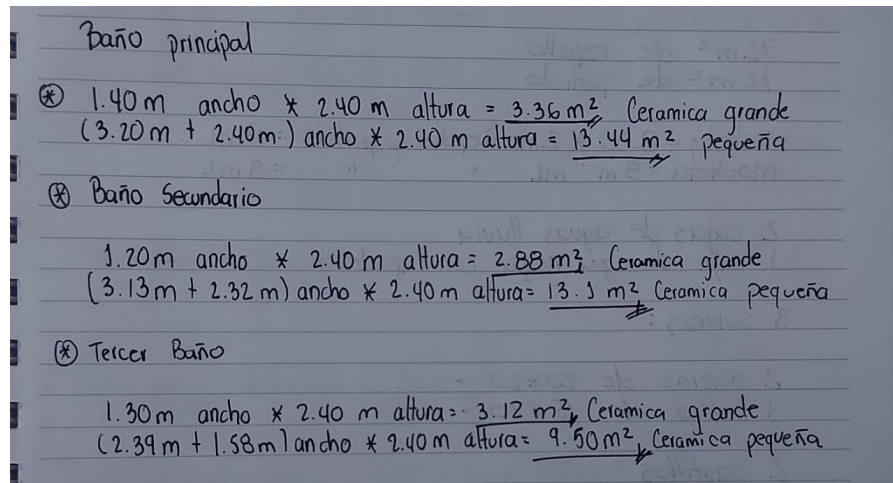 Baño principal
⊛ 1.40m ancho * 2.40 m altura = 3.36 m², Ceramica grande
(3.20m + 2.40m.) ancho * 2.40 m altura = 13.44 m² pequeña
⊛ Baño Secundario
1.20m ancho * 2.40 m altura = 2.88 m², Ceramica grande
(3.13m + 2.32 m) ancho * 2.40m altura= 13.1 m² Ceramica pequeña
⊛ Tercer Baño
1.30m ancho * 2.40 m altura= 3.12 m², Ceramica grande
(2.39m + 1.58m) ancho * 2.40m altura= 9.50m², Ceramica pequeña